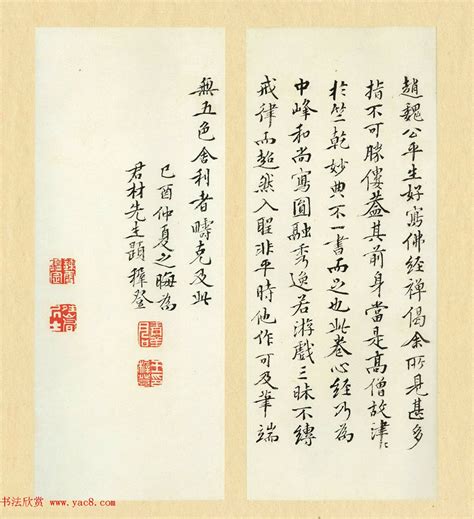 趙魏公平生好寫佛經禅偈余所見甚多
指不可勝僂蓋其前身當是高僧故津〻
於竺乾妙典不一書而之也此卷心經乃為
中峰和尚寫圓融秀逸若游戲三昧不縛
戒律而超然入聖非平時他作可及筆端
無五色舍利者疇克及此
己酉仲夏之晦為
君材先生題 穉登
书法欣赏 www.yac8.com